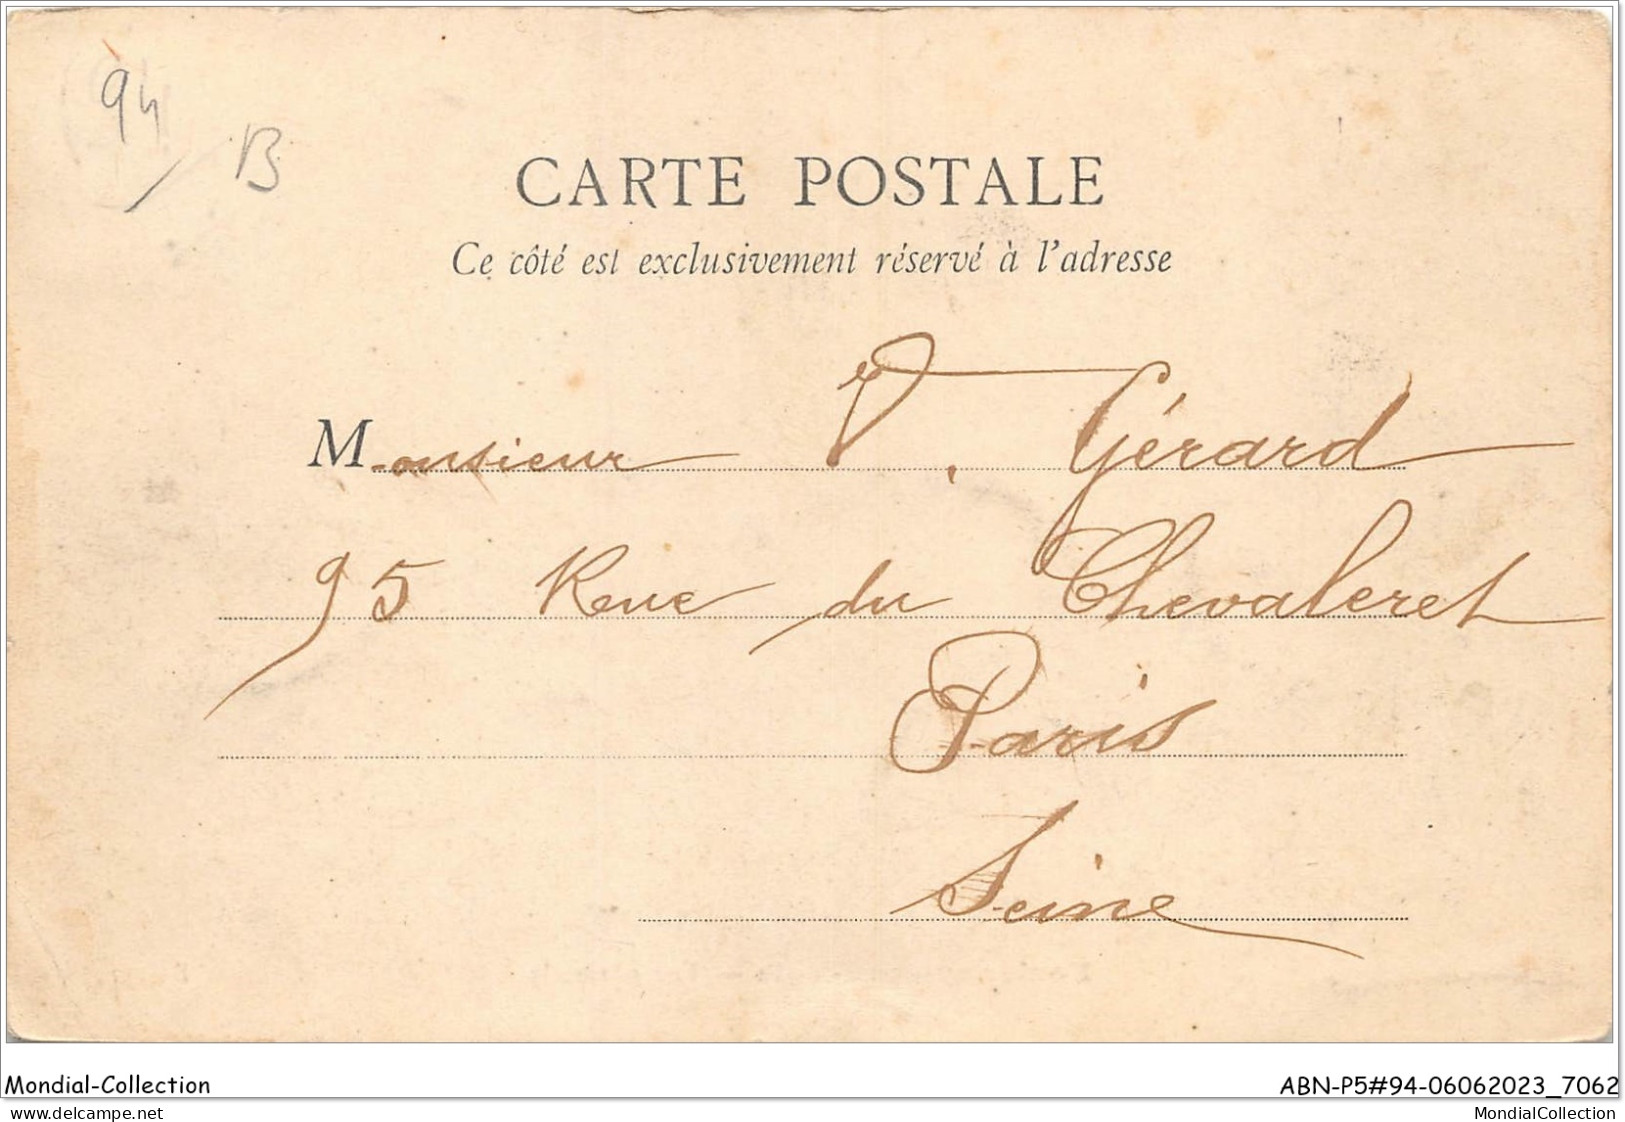 94
B
CARTE POSTALE
Ce côté est exclusivement réservé à l'adresse
Monsieur V. Gérard
95 Rue du Chevaleret
Paris
Seine
Mondial-Collection
ABN-P5#94-06062023_7062
www.delcampe.net
MondialCollection